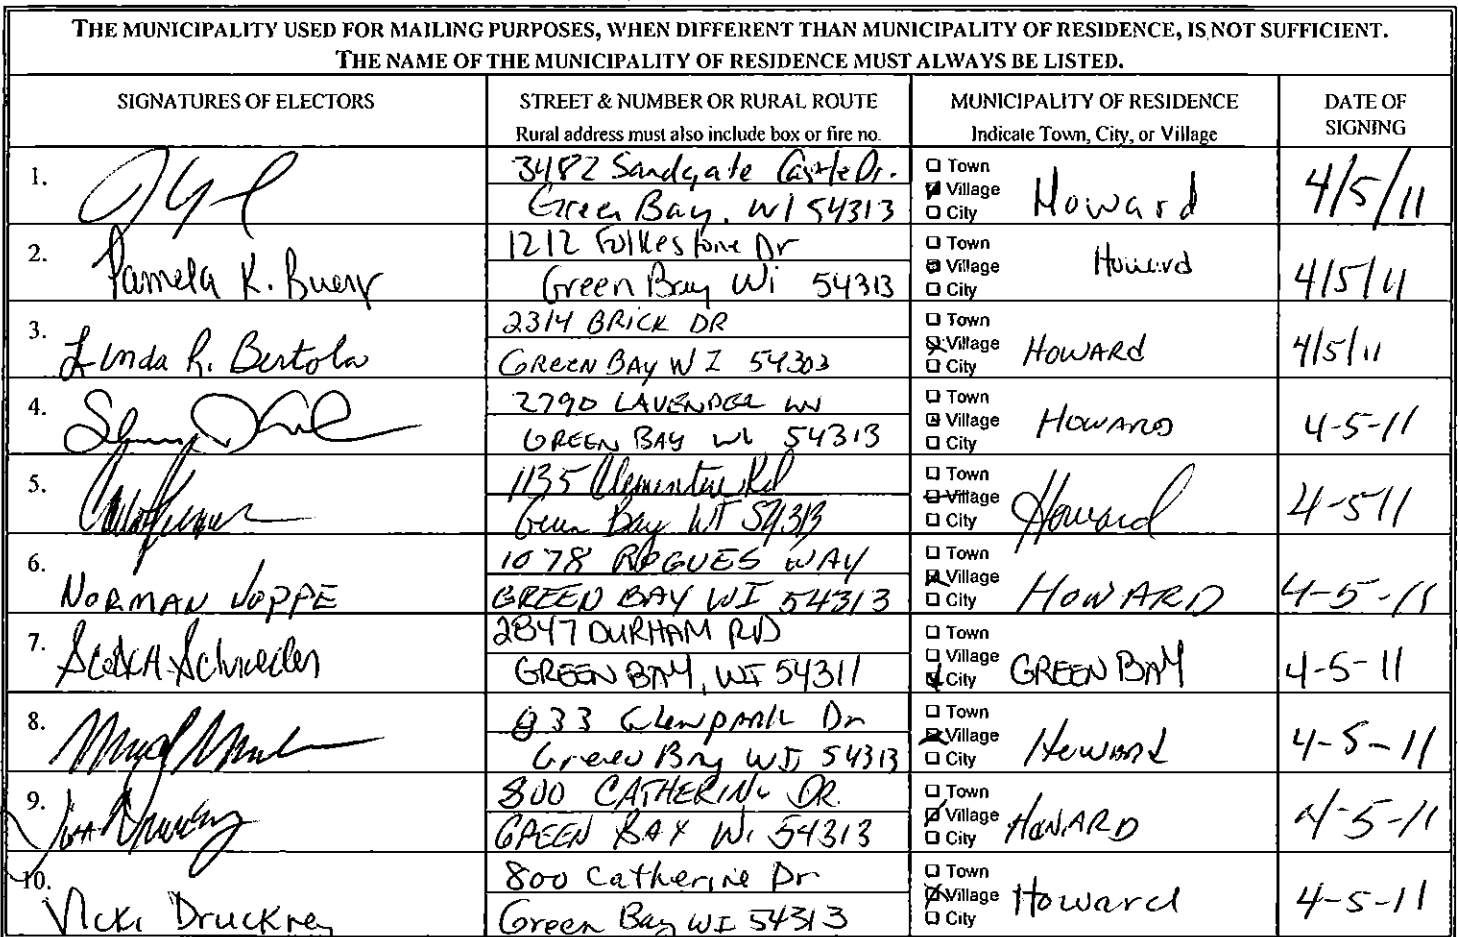 THE MUNICIPALITY USED FOR MAILING PURPOSES, WHEN DIFFERENT THAN MUNICIPALITY OF RESIDENCE, IS NOT SUFFICIENT.
THE NAME OF THE MUNICIPALITY OF RESIDENCE MUST ALWAYS BE LISTED.
SIGNATURES OF ELECTORS
STREET & NUMBER OR RURAL ROUTE
Rural address must also include box or fire no.
MUNICIPALITY OF RESIDENCE
Indicate Town, City, or Village
DATE OF
SIGNING
1.
3482 Sandgate Castle Dr.
Green Bay, WI 54313
Town
Village
City
Howard
4/5/11
2.
Pamela K.
1212 Folkestone Dr
Green Bay Wi 54313
Town
Village
City
Howard
4/5/11
3.
Linda R. Bertola
2314 BRICK DR
GREEN BAY WI 54303
Town
Village
City
HOWARd
4/5/11
4.
2790 LAVENDER LN
GREEN BAY WI 54313
Town
Village
City
HOWARD
4-5-11
5.
1135 Clementine Rd
Green Bay WI 54313
Town
Village
City
Howard
4-5 11
6.
NORMAN JOPPE
1078 ROGUES WAY
GREEN BAY WI 54313
Town
Village
City
HOWARD
4-5-11
7.
2847 DURHAM RD
GREEN BAY, WI 54311
Town
Village
City
GREEN BAY
4-5-11
8.
833 Glenpark Dr
Green Bay WI 54313
Town
Village
City
Howard
4-5-11
9.
800 CATHERINE DR.
GREEN BAY Wi 54313
Town
Village
City
HOWARD
4-5-11
10.
Vicki Druckrey
800 Catherine Dr
Green Bay WI 54313
Town
Village
City
Howard
4-5-11